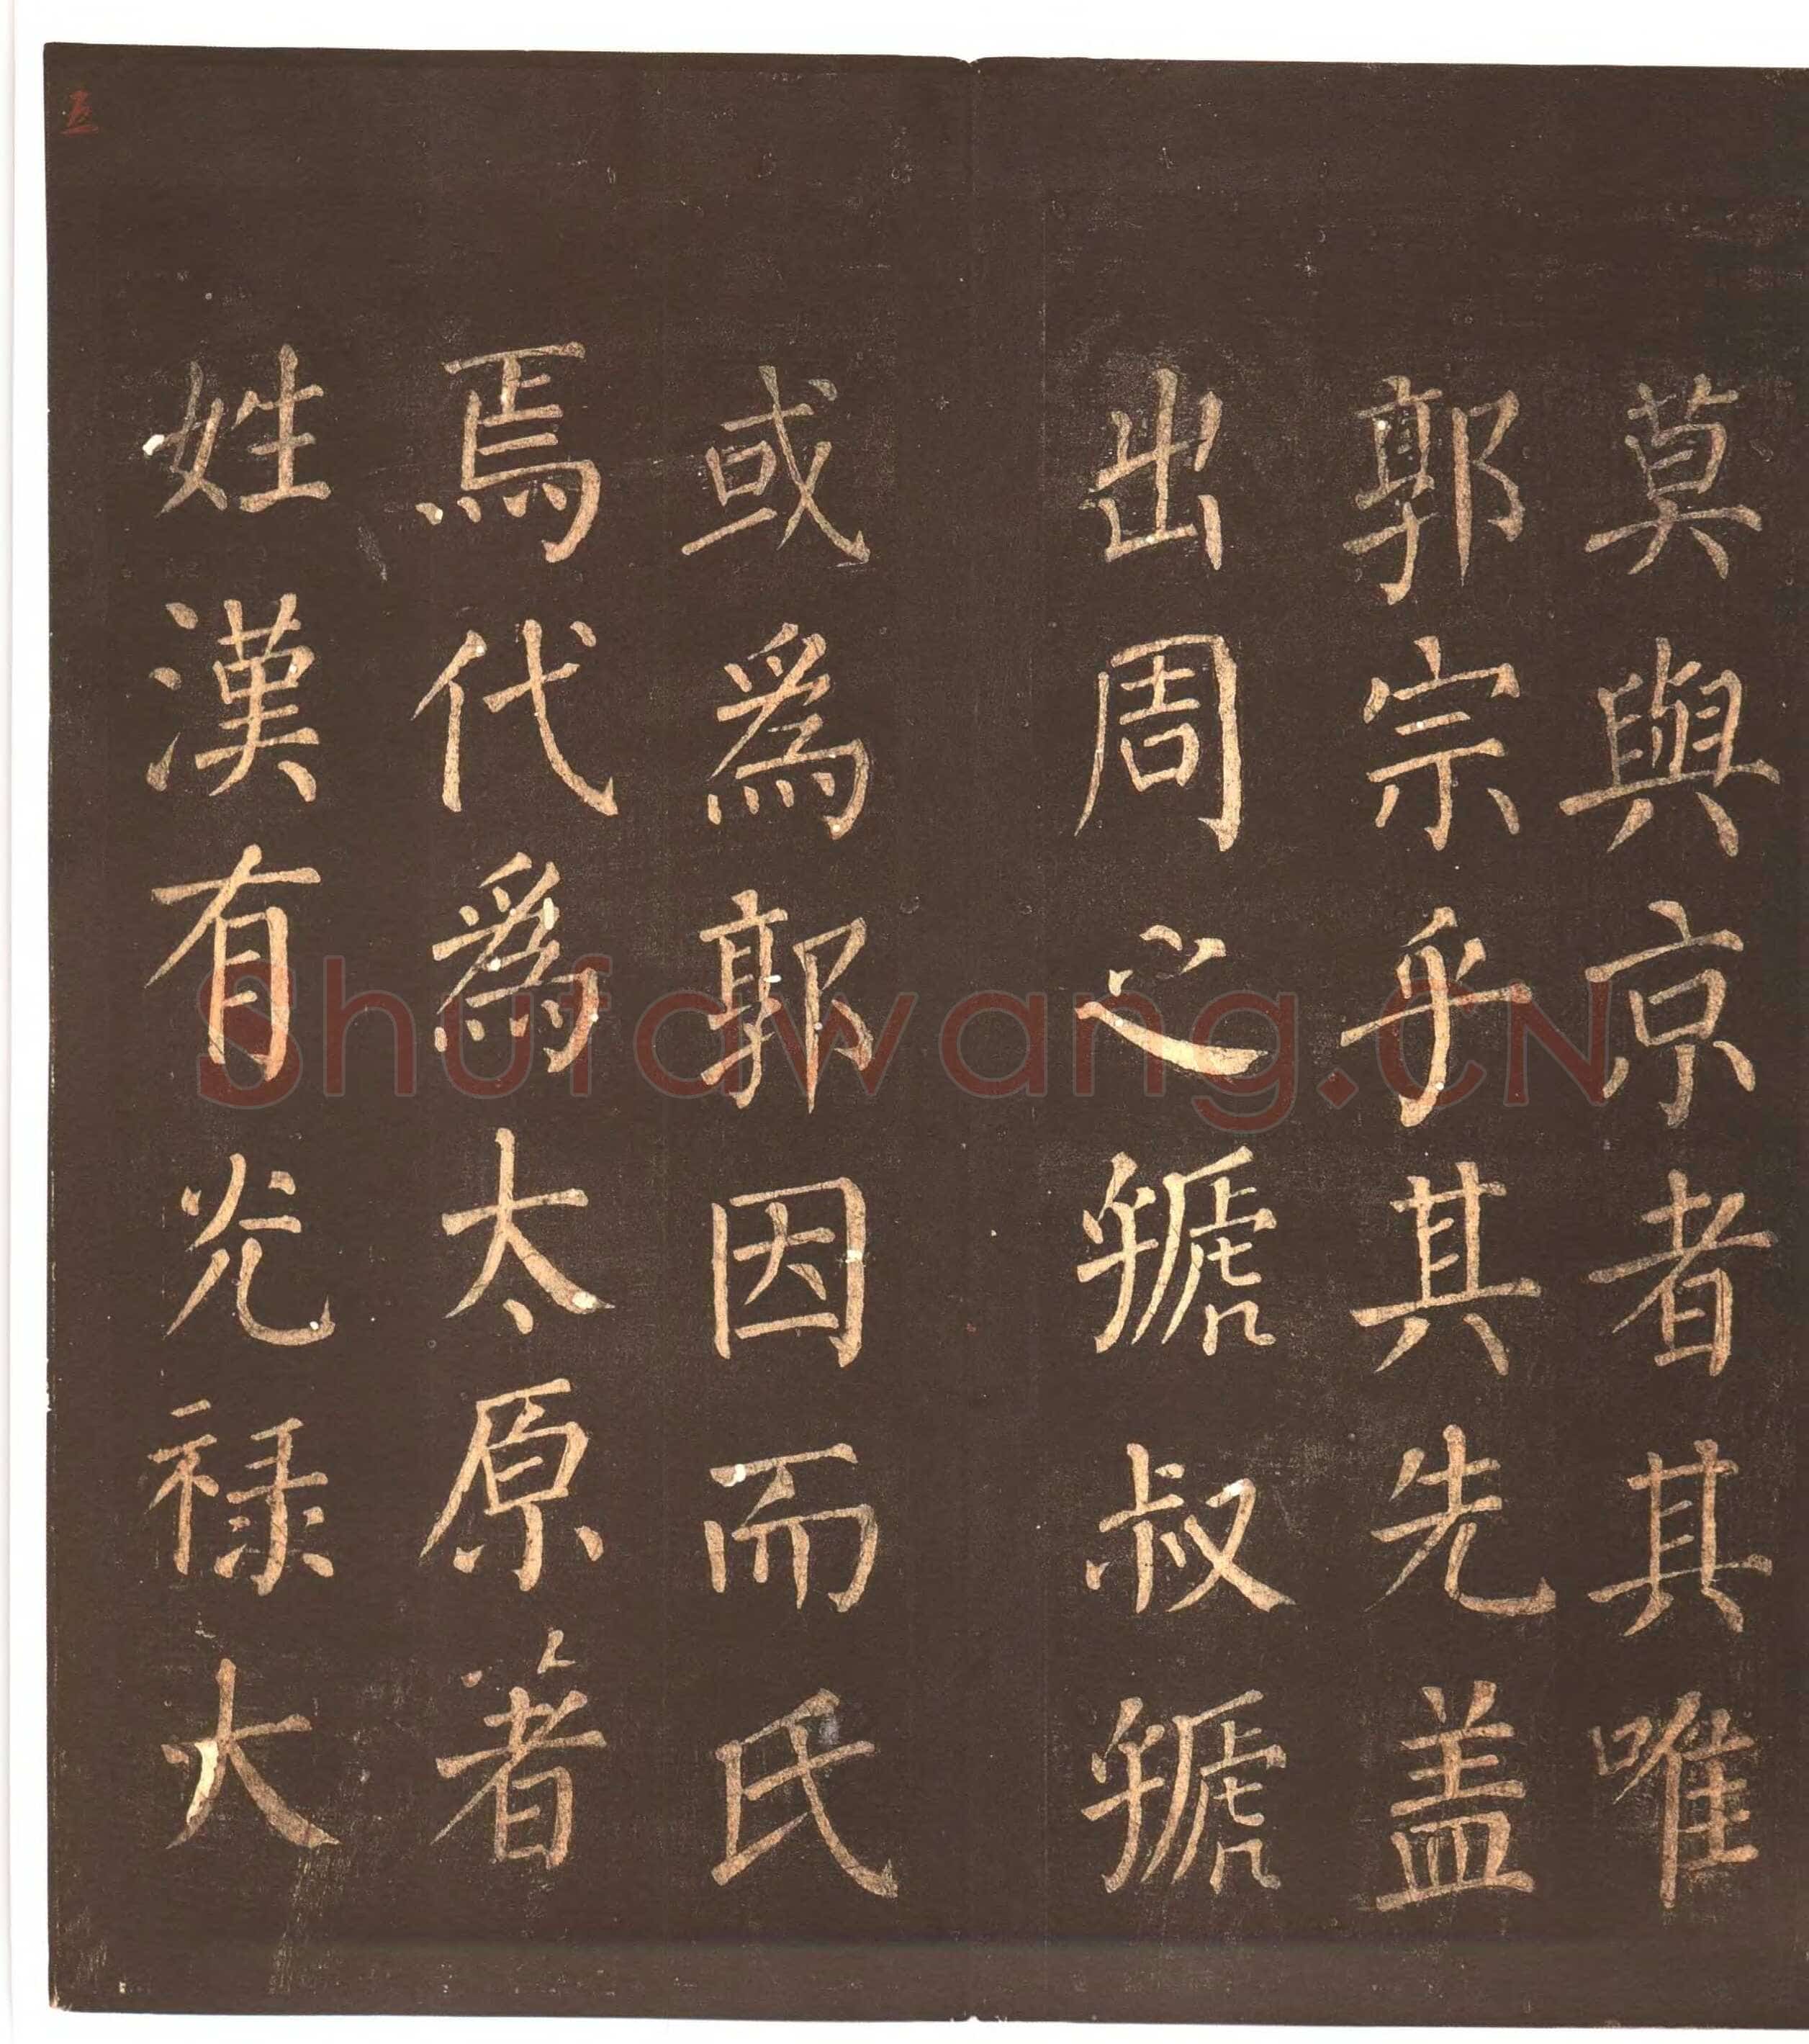 莫與京者其唯
郭宗乎其先盖
出周之虢叔虢
或為郭因而氏
焉代為太原著
姓漢有光禄大
Shufawang.CN
五